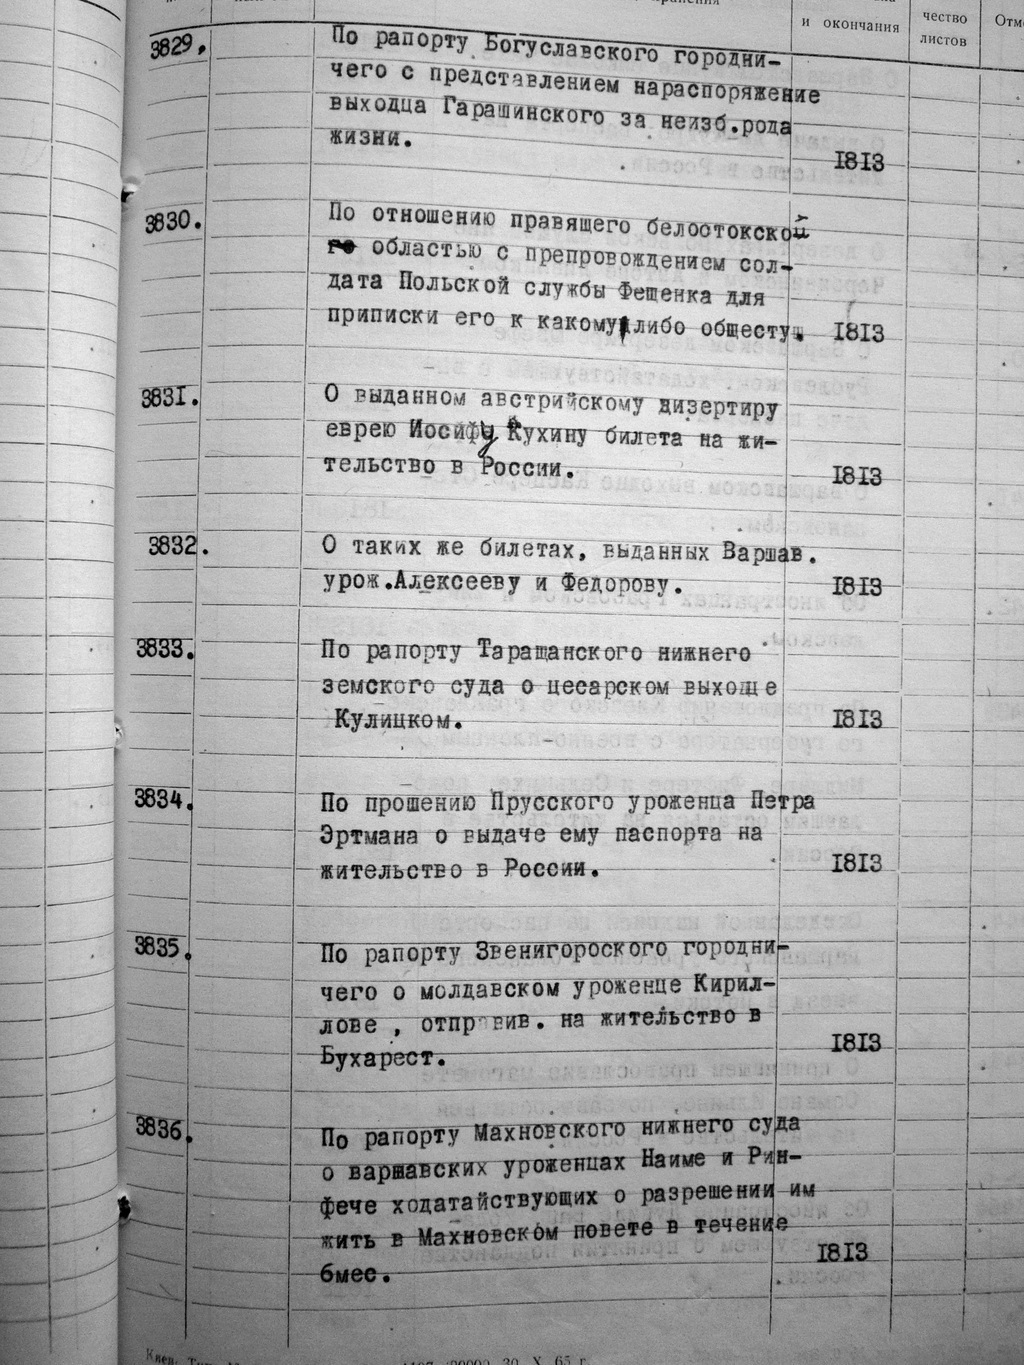 и окончания
чество
листов
3829.
По рапорту Богуславского городни-
чего с представлением нараспоряжение
выходца Гарашинского за неизб.рода
жизни.
1813
3830.
По отношению правящего белостокской
областью с препровождением сол-
дата Польской службы Фещенка для
приписки его к какому либо общесту.
1813
3831.
О выданном австрийскому дизертиру
еврею Иосифу Кухину билета на жи-
тельство в России.
1813
3832.
О таких же билетах, выданных Варшав.
урож.Алексееву и Федорову.
1813
3833.
По рапорту Таращанского нижнего
земского суда о цесарском выходце
Кулицком.
1813
3834.
По прошению Прусского уроженца Петра
Эртмана о выдаче ему паспорта на
жительство в России.
1813
3835.
По рапорту Звенигороского городни-
чего о молдавском уроженце Кирил-
лове , отправив. на жительство в
Бухарест.
1813
3836.
По рапорту Махновского нижнего суда
о варшавских уроженцах Наиме и Рин-
фече ходатайствующих о разрешении им
жить в Махновском повете в течение
6мес.
1813